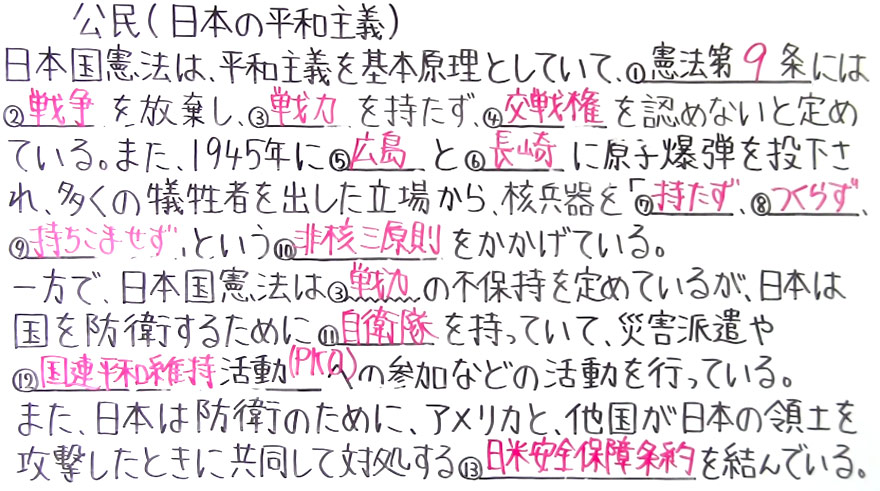 公民(日本の平和主義)
日本国憲法は、平和主義を基本原理としていて、①憲法第9条には
②戦争を放棄し、③戦力を持たず、④交戦権を認めないと定め
ている。また、1945年に⑤広島と⑥長崎に原子爆弾を投下さ
れ、多くの犠牲者を出した立場から、核兵器を「⑦持たず、⑧つくらず、
⑨持ちこませず」という⑩非核三原則をかかげている。
一方で、日本国憲法は③戦力の不保持を定めているが、日本は
国を防衛するために⑪自衛隊を持っていて、災害派遣や
⑫国連平和維持活動(PKO)への参加などの活動を行っている。
また、日本は防衛のために、アメリカと、他国が日本の領土を
攻撃したときに共同して対処する⑬日米安全保障条約を結んでいる。